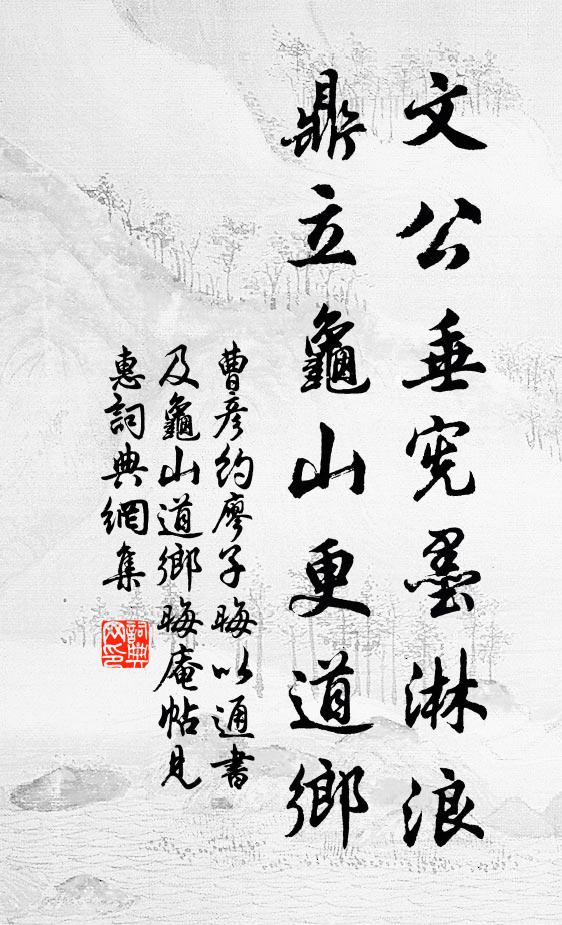 文公垂宪墨淋浪
鼎立龜山更道鄉
曹彦約廖子晦以通書
及龜山道鄉晦庵帖見
惠詞典網集
詞典網印